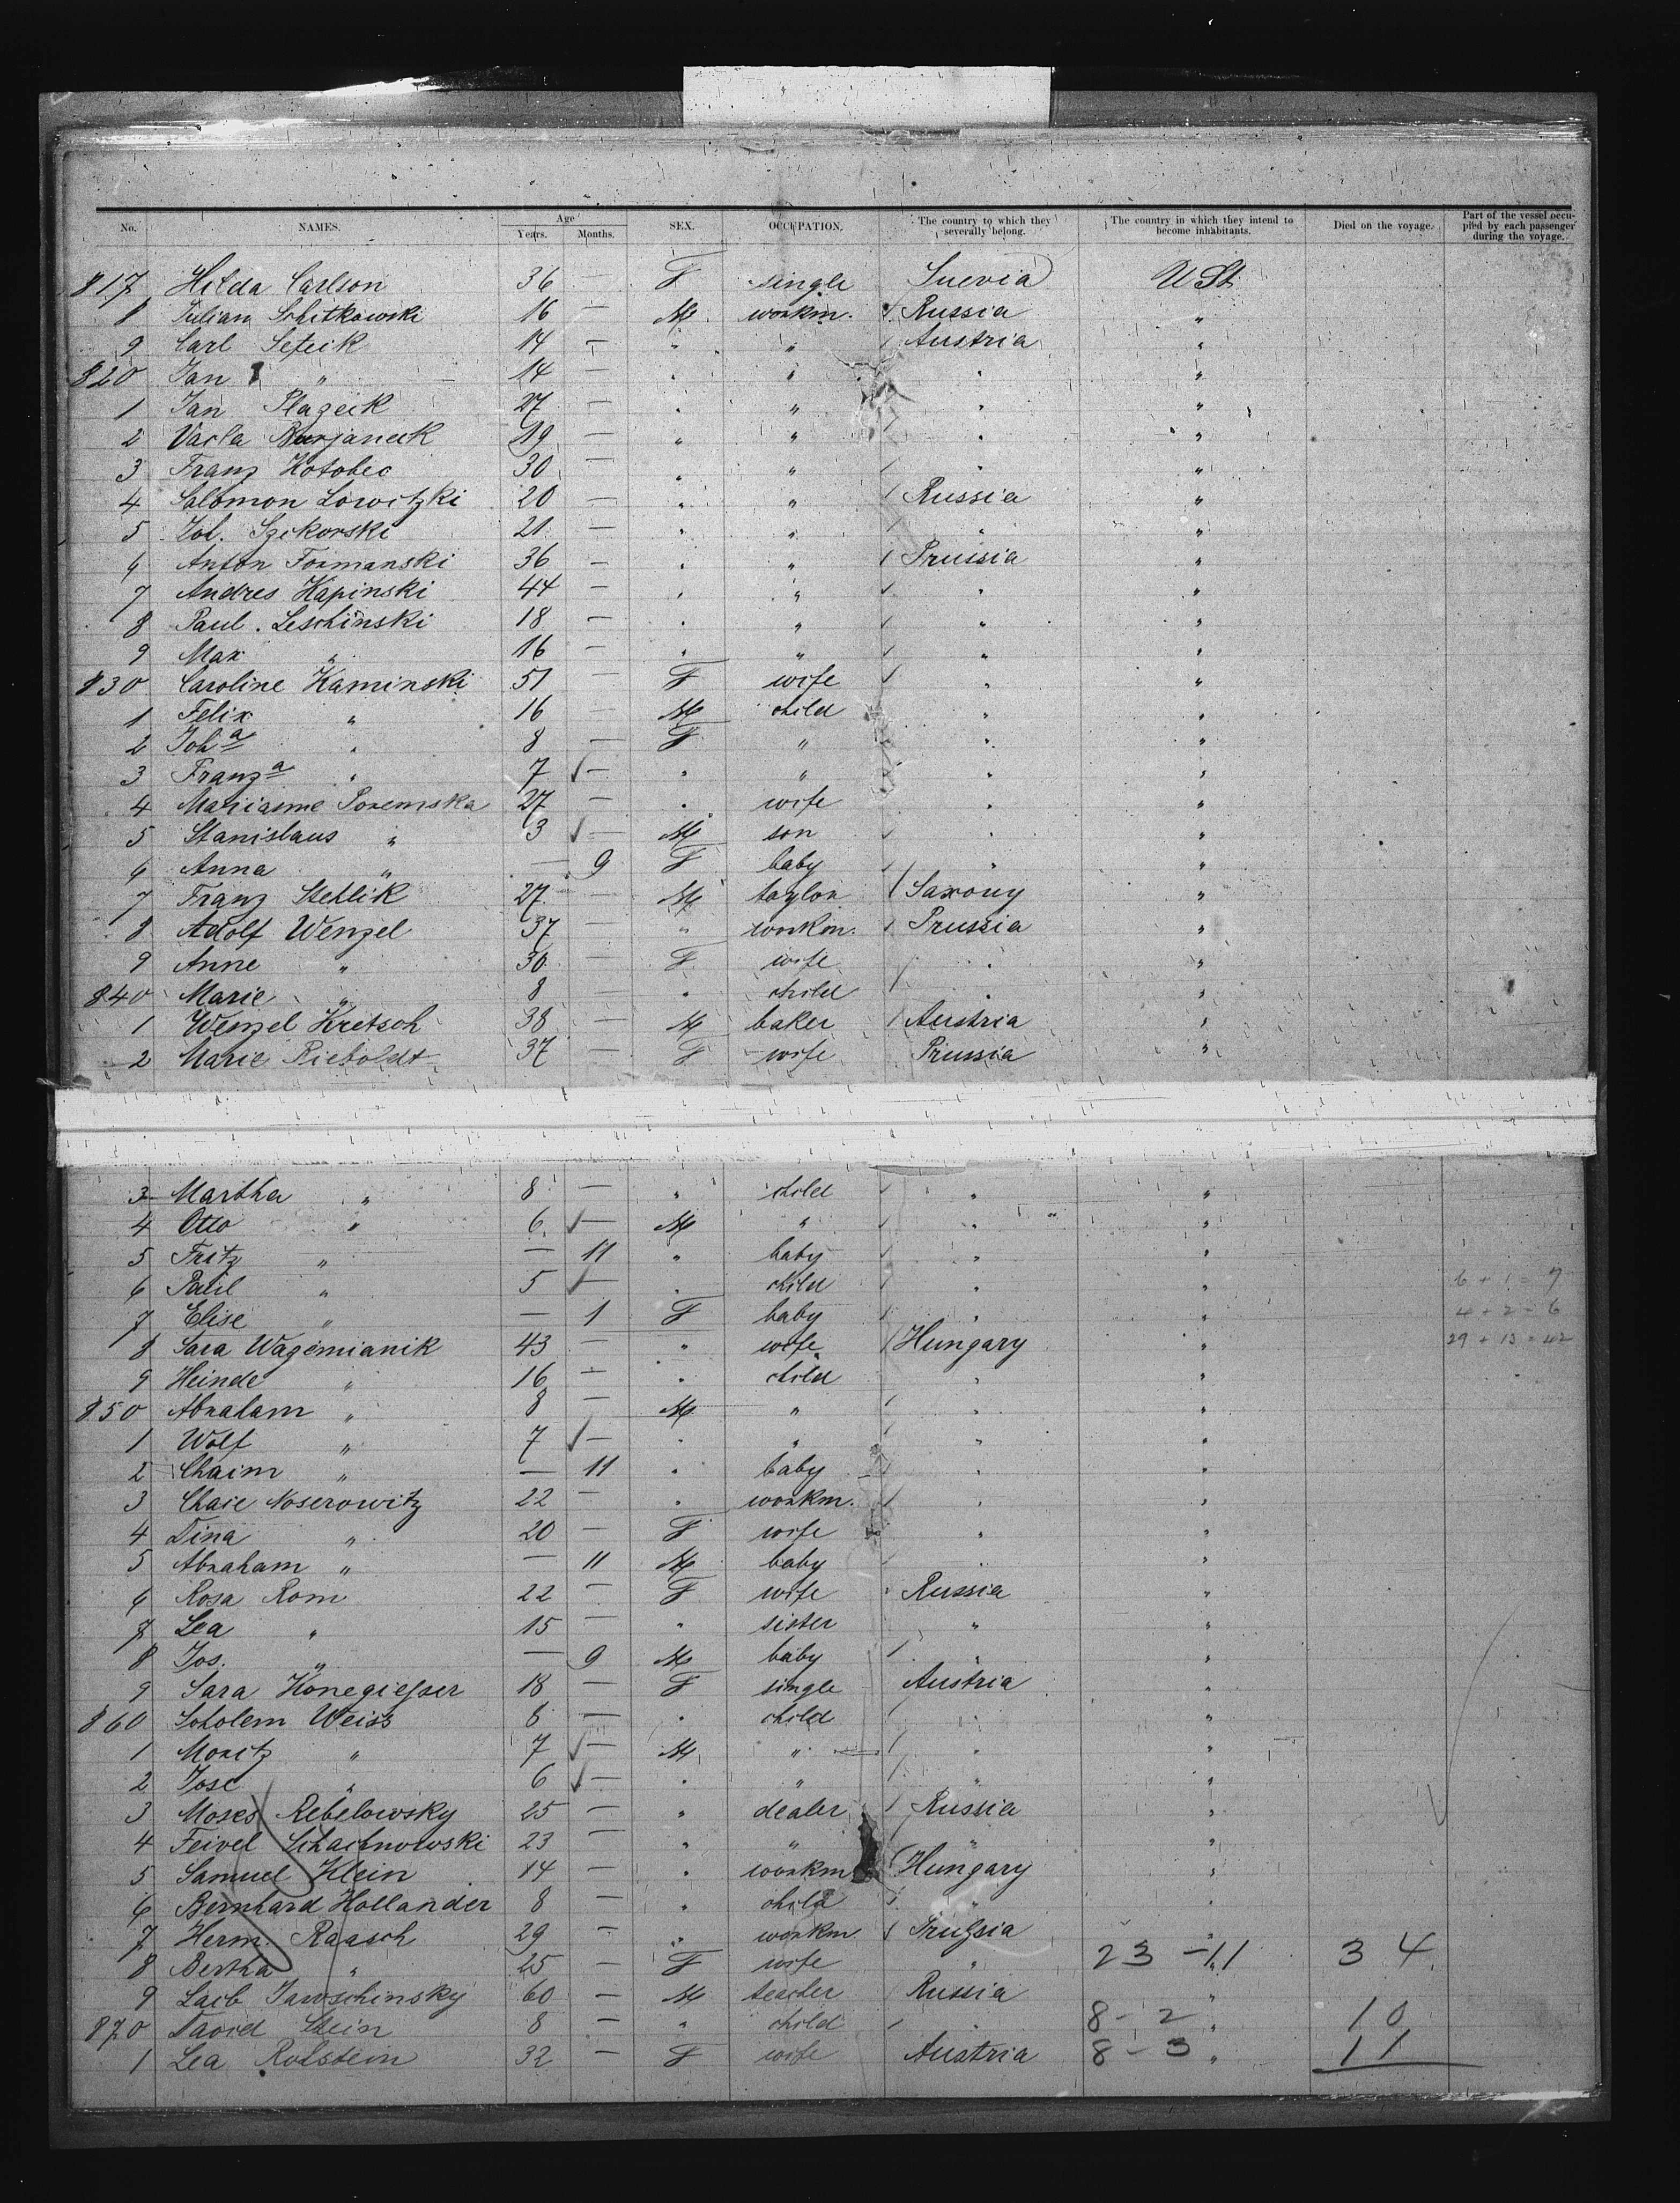 No. NAMES. Age Years. Months. SEX. OCCUPATION. The country to which they severally belong. The country in which they intend to become inhabitants. Died on the voyage. Part of the vessel occupied by each passenger during the voyage.
817 Hilda Carlson 36 — F single Suevia U St.
8 Julian Schitkowski 16 — M workm. Russia "
9 Carl Sefcik 14 — " " Austria "
820 Jan " 14 — " " " "
1 Jan Plazeik 27 — " " " "
2 Vacla Burjaneck 19 — " " " "
3 Franz Hotobec 30 — " " " "
4 Salomon Lowitzki 20 — " " Russia "
5 Jol. Szikorski 21 — " " " "
6 Anton Foimanski 36 — " " Prussia "
7 Andres Kapinski 44 — " " " "
8 Paul Leschinski 18 — " " " "
9 Max " 16 — " " " "
830 Caroline Kaminski 51 — F wife " "
1 Felix " 16 — M child " "
2 Joh a " 8 — F " " "
3 Franz a " 7 — " " " "
4 Marianne Poremska 27 — " wife " "
5 Stanislaus " 3 — M son " "
6 Anna " — 9 F baby " "
7 Franz Stehlik 27 — M taylor Saxony "
8 Adolf Wenzel 37 — " workm. Prussia "
9 Anne " 30 — F wife " "
840 Marie " 8 — " child " "
1 Wenzel Kretsch 38 — M baker Austria "
2 Marie Rieboldt 37 — F wife Prussia "
3 Martha " 8 — " child " "
4 Otto " 6 — M " " "
5 Fritz " — 11 " baby " "
6 Paul " 5 — " child " " 6 + 1 7
7 Elise " — 1 F baby " " 4 + 2 - 6
8 Sara Wagemianik 43 — " wife Hungary " 29 + 13 = 42
9 Heinde " 16 — " child " "
850 Abraham " 8 — M " " "
1 Wolf " 7 — " " " "
2 Chaim " — 11 " baby " "
3 Chaie Noserowitz 22 — " workm. " "
4 Dina " 20 — F wife " "
5 Abraham " — 11 M baby " "
6 Rosa Rom 22 — F wife Russia "
7 Lea " 15 — " sister " "
8 Jos. " — 9 M baby " "
9 Sara Honegiesser 18 — F single Austria "
860 Scholem Weiss 8 — " child " "
1 Moritz " 7 — M " " "
2 Jose " 6 — " " " "
3 Moses Rebelowsky 25 — " dealer Russia "
4 Feivel Schachnowski 23 — " " " "
5 Samuel Klein 14 — " workm Hungary "
6 Bernhard Hollander 8 — " child " "
7 Herm. Raasch 29 — " workm Prussia "
8 Bertha " 25 — F wife " " 23 - 11 34
9 Laib Jawschinsky 60 — M teacher Russia "
870 David Stein 8 — " child " " 8 - 2 10
1 Lea Rolstein 32 — F wife Austria " 8 - 3 11